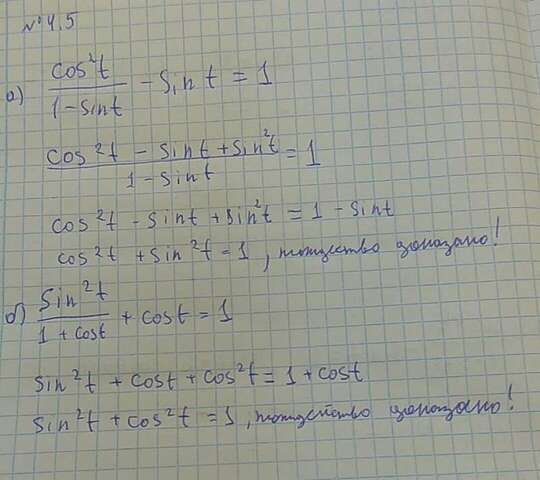 №4.5
а) cos²t / (1 - sin t) - sin t = 1
(cos²t - sin t + sin²t) / (1 - sin t) = 1
cos²t - sin t + sin²t = 1 - sin t
cos²t + sin²t = 1, тождество доказано!
б) sin²t / (1 + cos t) + cos t = 1
sin²t + cos t + cos²t = 1 + cos t
sin²t + cos²t = 1, тождество доказано!